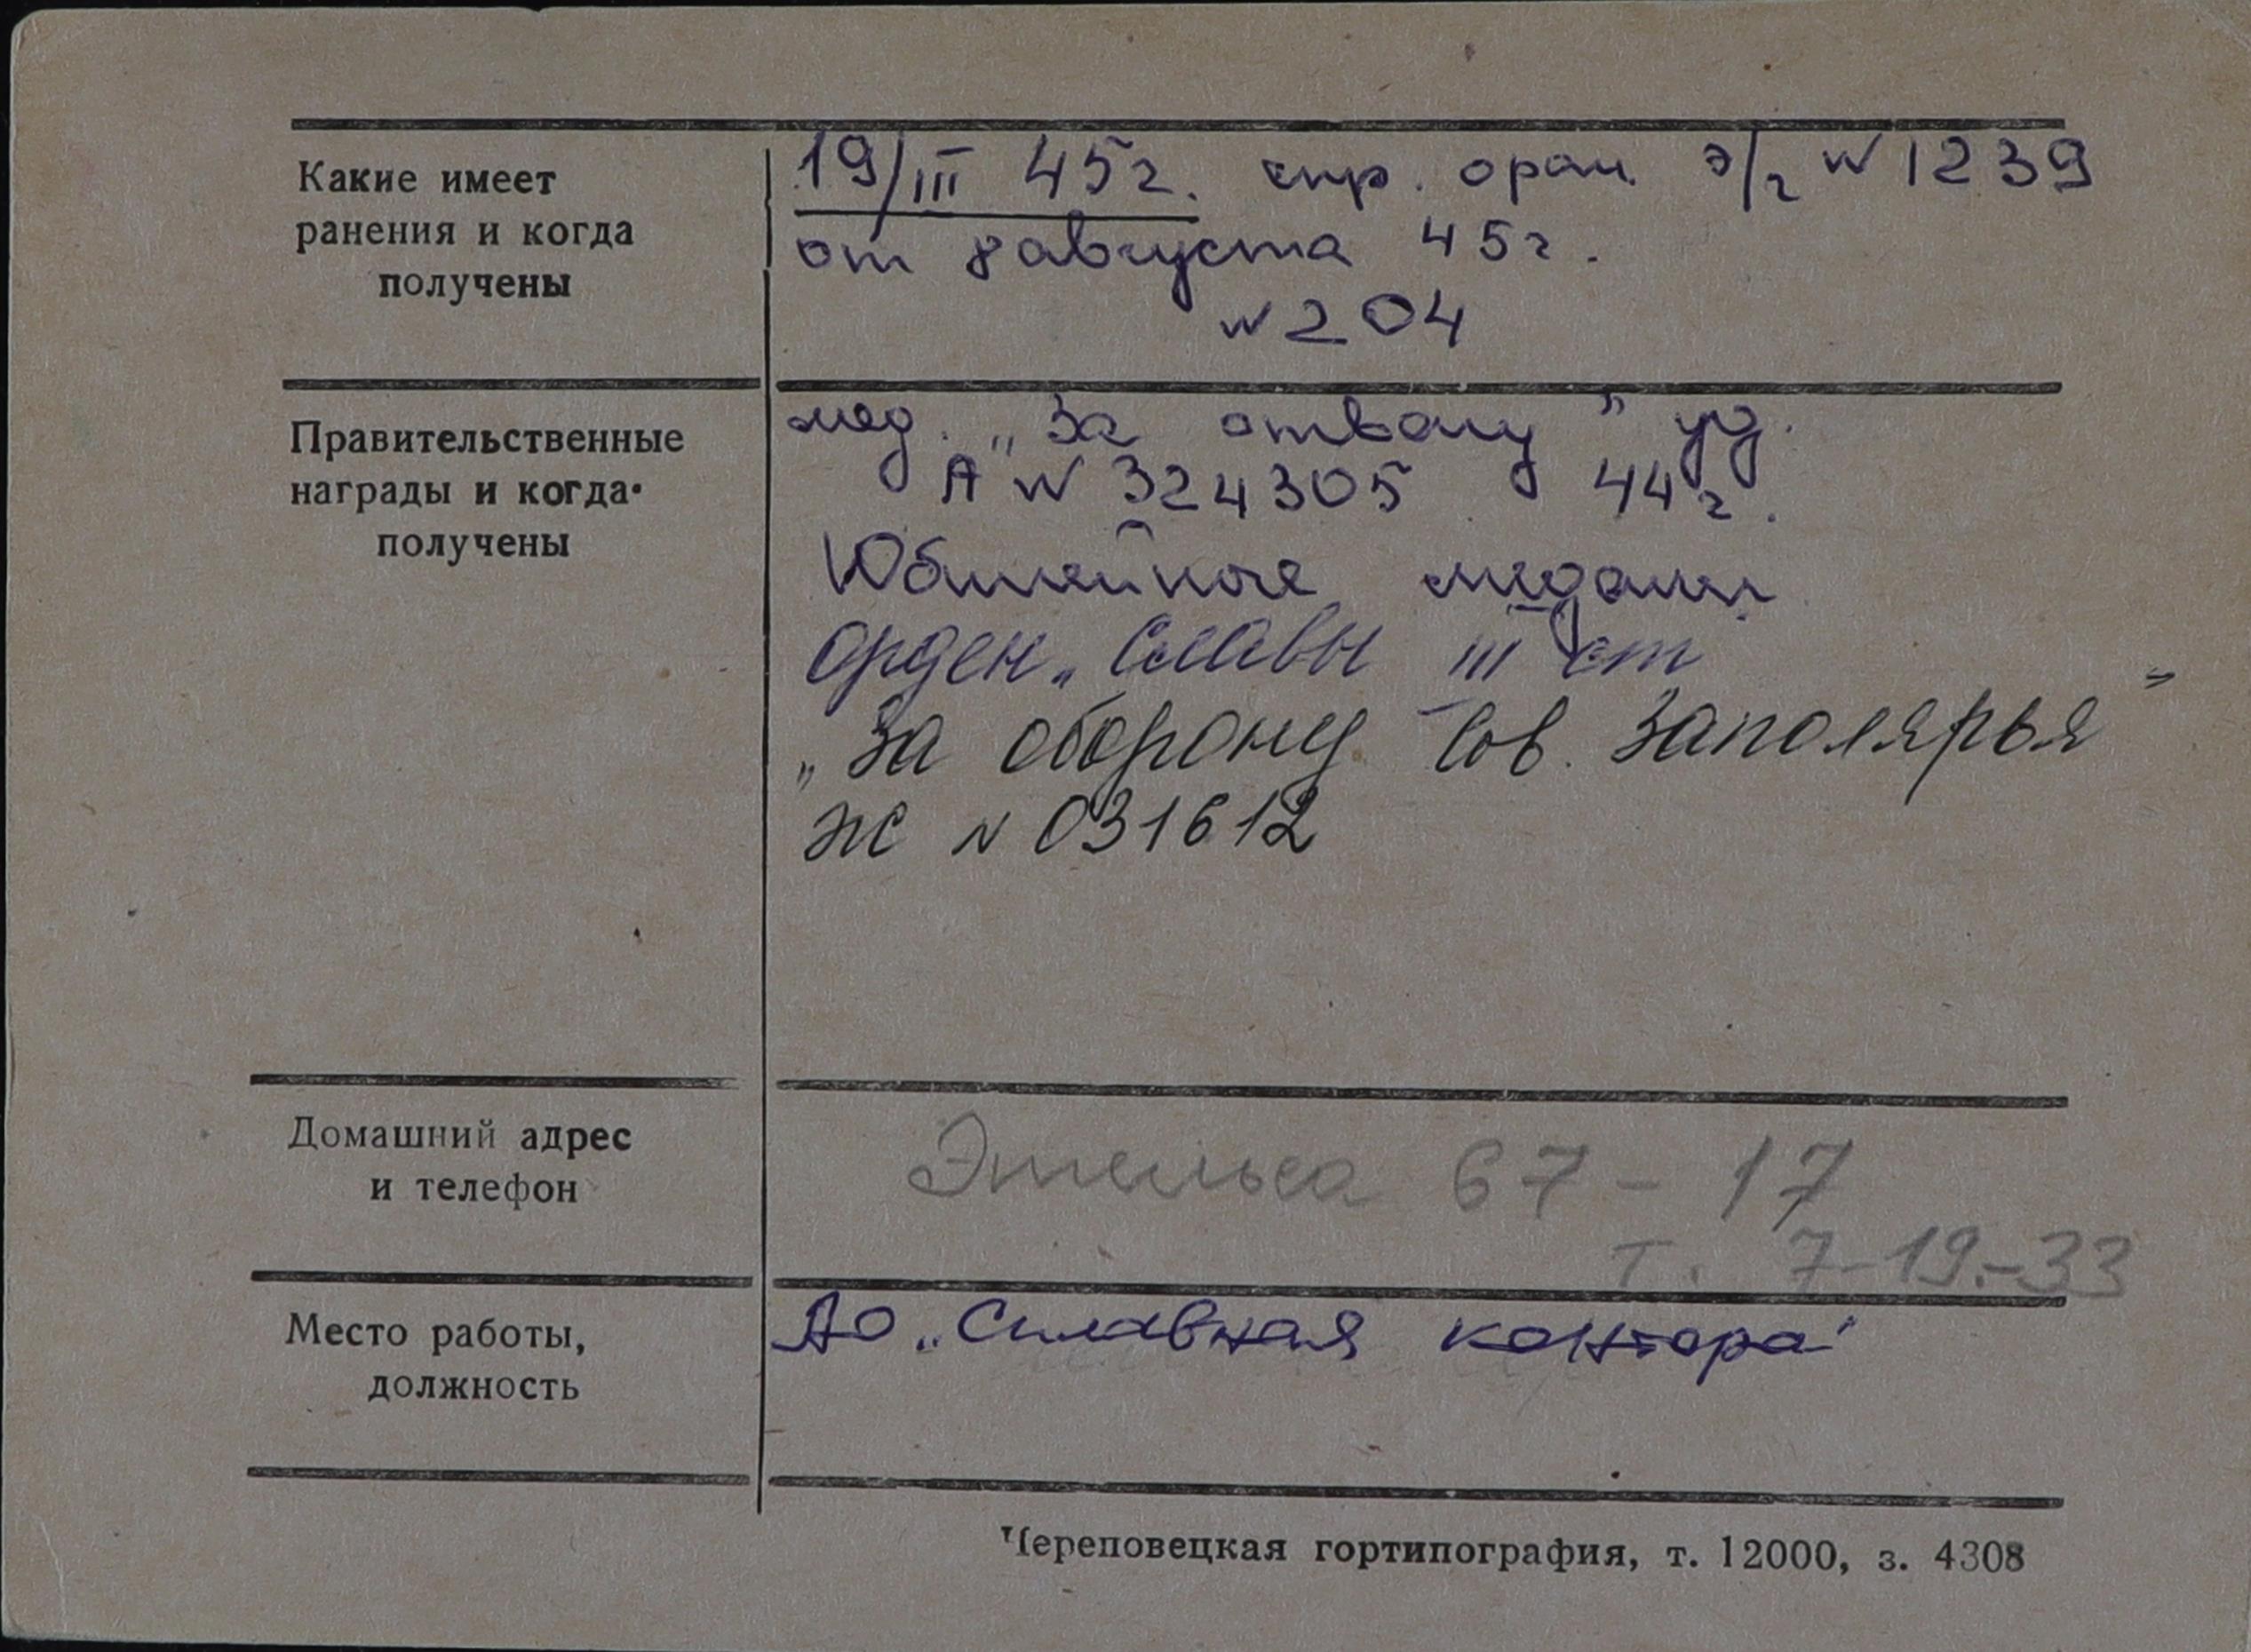 Какие имеет
ранения и когда
получены
19/III 45г. спр. ораи э/г N 1239
от 8 августа 45г.
N 204
Правительственные
награды и когда
получены
мед. „За отвагу" уд.
А N 324305 44г.
Юбилейные медали
Орден „Славы III ст
„За оборону Сов. Заполярья"
Ж N 031612
Домашний адрес
и телефон
Энгельса 67-17
т. 7-19-33
Место работы,
должность
АО „Сплавная контора"
Череповецкая гортипография, т. 12000, з. 4308